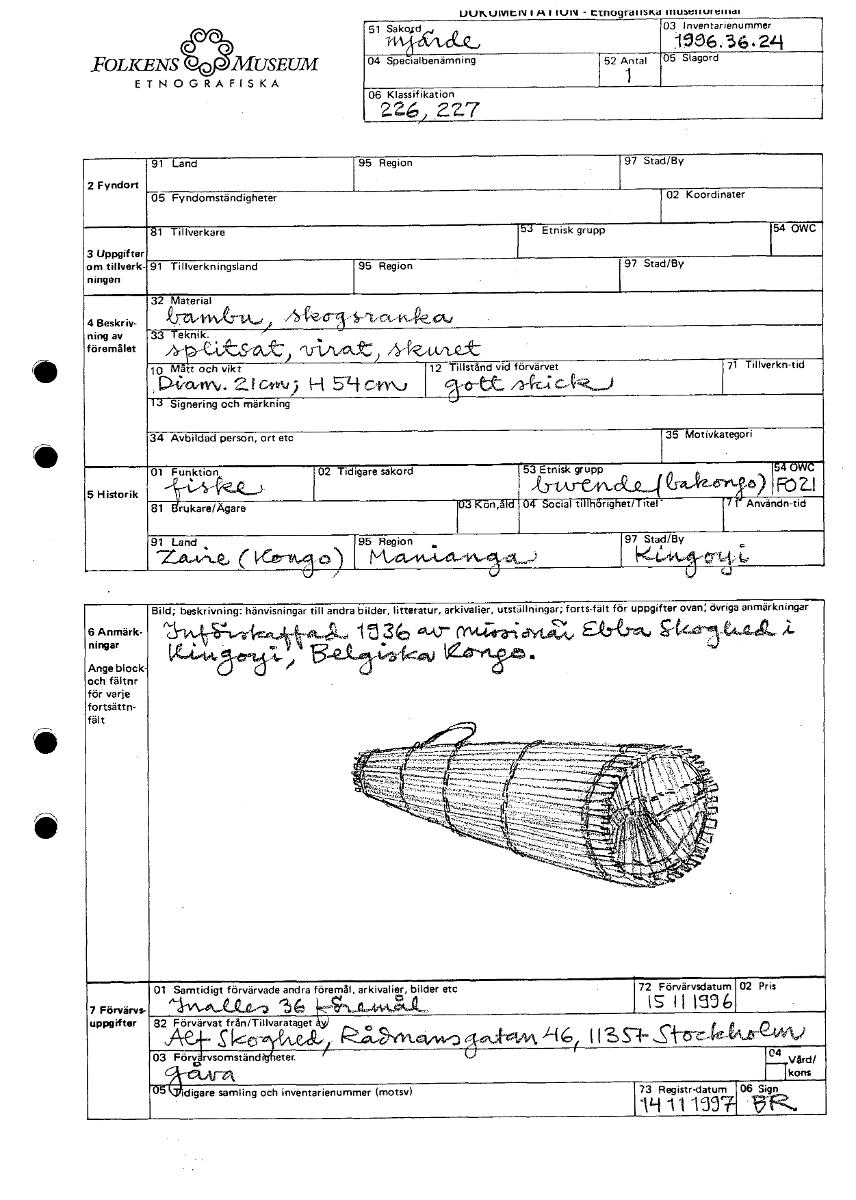 DOKUMENTATION - Etnografiska museiföremål
FOLKENS MUSEUM
ETNOGRAFISKA
51 Sakord
mjärde
03 Inventarienummer
1996.36.24
04 Specialbenämning
52 Antal
1
05 Slagord
06 Klassifikation
226, 227
2 Fyndort
91 Land
95 Region
97 Stad/By
05 Fyndomständigheter
02 Koordinater
3 Uppgifter
om tillverk-
ningen
81 Tillverkare
53 Etnisk grupp
54 OWC
91 Tillverkningsland
95 Region
97 Stad/By
4 Beskriv-
ning av
föremålet
32 Material
bambu, skogsranka
33 Teknik.
splitsat, virat, skuret
10 Mått och vikt
Diam. 21cm; H 54cm
12 Tillstånd vid förvärvet
gott skick
71 Tillverkn-tid
13 Signering och märkning
34 Avbildad person, ort etc
35 Motivkategori
5 Historik
01 Funktion
fiske
02 Tidigare sakord
53 Etnisk grupp
bwende (bakongo)
54 OWC
FO21
81 Brukare/Ägare
03 Kön,åld
04 Social tillhörighet/Titel
71 Användn-tid
91 Land
Zaire (Kongo)
95 Region
Manianga
97 Stad/By
Kingoyi
6 Anmärk-
ningar
Ange block-
och fältnr
för varje
fortsättn-
fält
Bild; beskrivning: hänvisningar till andra bilder, litteratur, arkivalier, utställningar; forts-fält för uppgifter ovan; övriga anmärkningar
Införskaffad 1936 av missionär Ebba Skoghed i
Kingoyi, Belgiska Kongo.
7 Förvärvs-
uppgifter
01 Samtidigt förvärvade andra föremål, arkivalier, bilder etc
Inalles 36 föremål
72 Förvärvsdatum
15 11 1996
02 Pris
82 Förvärvat från/Tillvarataget av
Alf Skoghed, Rådmansgatan 46, 11357 Stockholm
03 Förvärvsomständigheter.
gåva
04 Vård/
kons
05 Tidigare samling och inventarienummer (motsv)
73 Registr-datum
14 11 1997
06 Sign
BR.